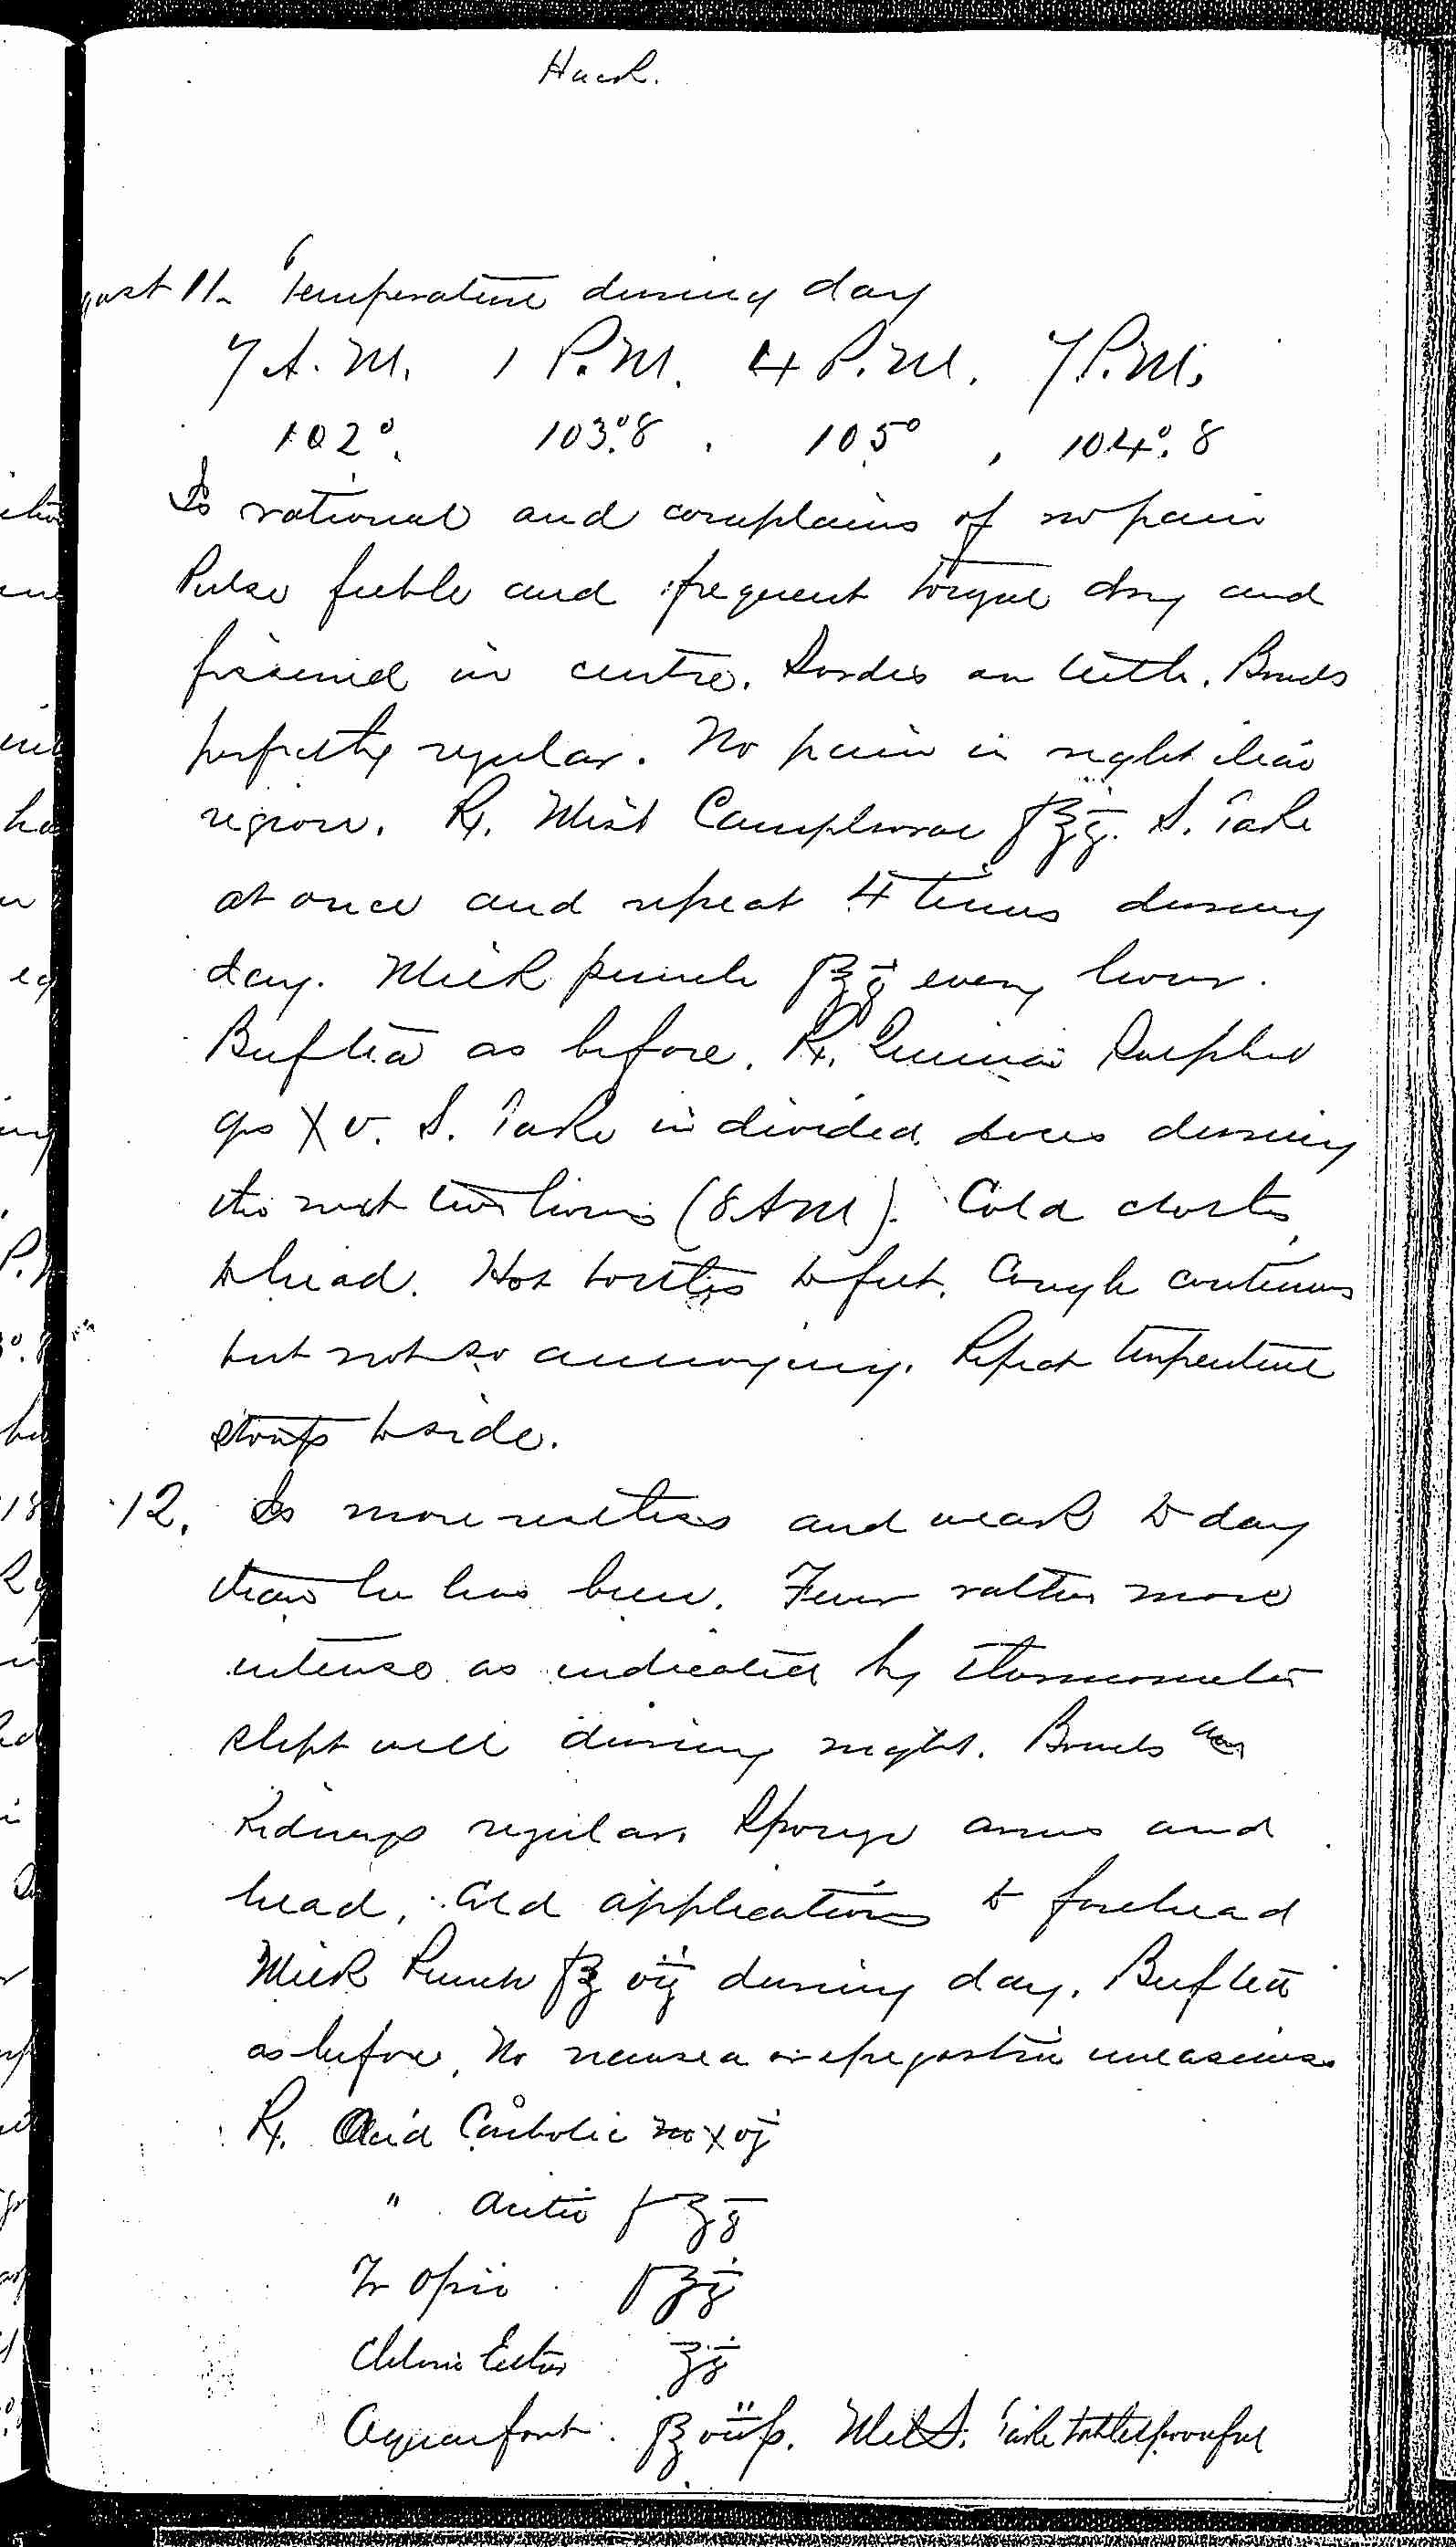 Hack.
gust 11. Temperature during day
7 A.M. 1 P.M. 4 P.M. 7 P.M.
102°. 103.°8 . 105° , 104°.8
Is rational and complains of no pain
Pulse feeble and frequent tongue dry and
fissured in centre. Sordes on teeth. Bowels
perfectly regular. No pain in right iliac
region. ℞. Mist Camphorae f℥j. S. Take
at once and repeat 4 times during
day. Milk punch f℥j every hour.
Beef tea as before. ℞. Quiniae Sulphat
grs XV. S. Take in divided doses during
the next two hours (8 AM). Cold cloths
to head. Hot bottles to feet. Cough continues
but not so annoying. Repeat turpentine
stoups to side.
12. Is more restless and weak to day
than he has been. Fever rather more
intense as indicated by thermometer
slept well during night. Bowels and
Kidneys regular. Sponge arms and
head, cold applications to forehead
Milk Punch f℥ vij during day. Beef tea
as before. No nausea or epigastric uneasiness
℞. Acid Carbolic xvj
" Acetic f ʒj
Tr Opii fʒij
Chloric Ether ʒij
Aquae font. f℥ viiss. M et S. Take tablespoonful